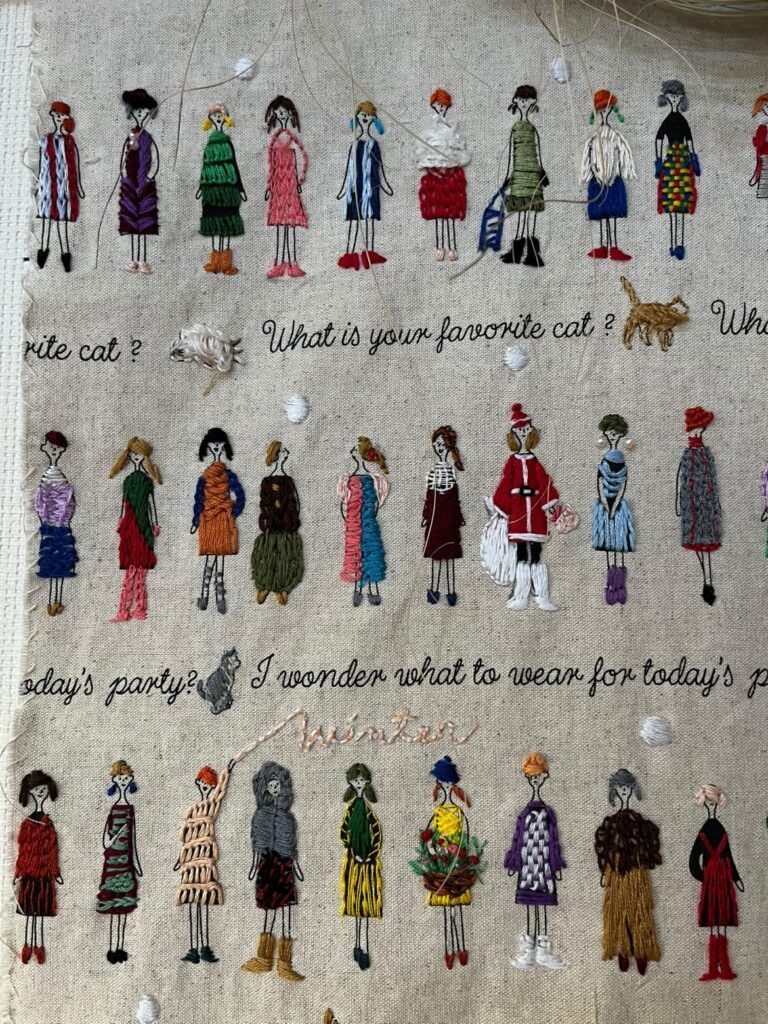 rite cat ? What is your favorite cat ? Wha
oday's party? I wonder what to wear for today's p
winter